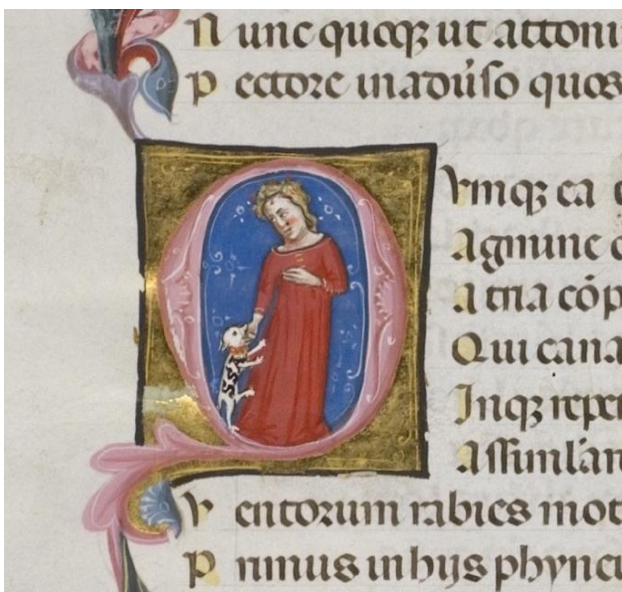 N unc quoqꝫ ut attoni
P ectore in adu̾so quos
D
Vmqꝫ ea c
Agmine c
Atria cōp
Qui cana
Inqꝫ repe
Assimlar
V entorum rabies mot
P rimus in hijs phyneu